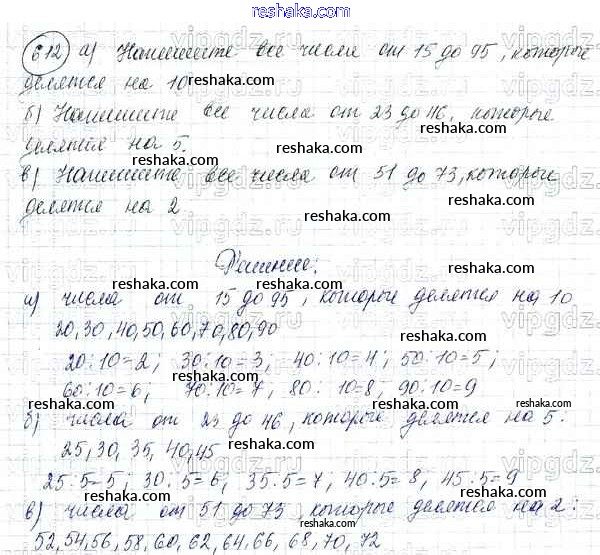 reshaka.com
612 а) Напишите все числа от 15 до 95, которые
делятся на 10
reshaka.com
б) Напишите все числа от 23 до 46, которые
reshaka.com
делятся на 5.
reshaka.com
в) Напишите все числа от 51 до 73, которые
reshaka.com
делятся на 2
reshaka.com
Решение:
reshaka.com
а) числа от 15 до 95, которые делятся на 10
reshaka.com
20, 30, 40, 50, 60, 70, 80, 90
reshaka.com
20:10=2; 30:10=3; 40:10=4; 50:10=5;
reshaka.com
60:10=6; 70:10=7; 80:10=8; 90:10=9
reshaka.com
б) числа от 23 до 46, которые делятся на 5:
reshaka.com
25, 30, 35, 40, 45
reshaka.com
25:5=5; 30:5=6; 35:5=7; 40:5=8; 45:5=9
reshaka.com
в) числа от 51 до 73, которые делятся на 2:
reshaka.com
52, 54, 56, 58, 60, 62, 64, 66, 68, 70, 72